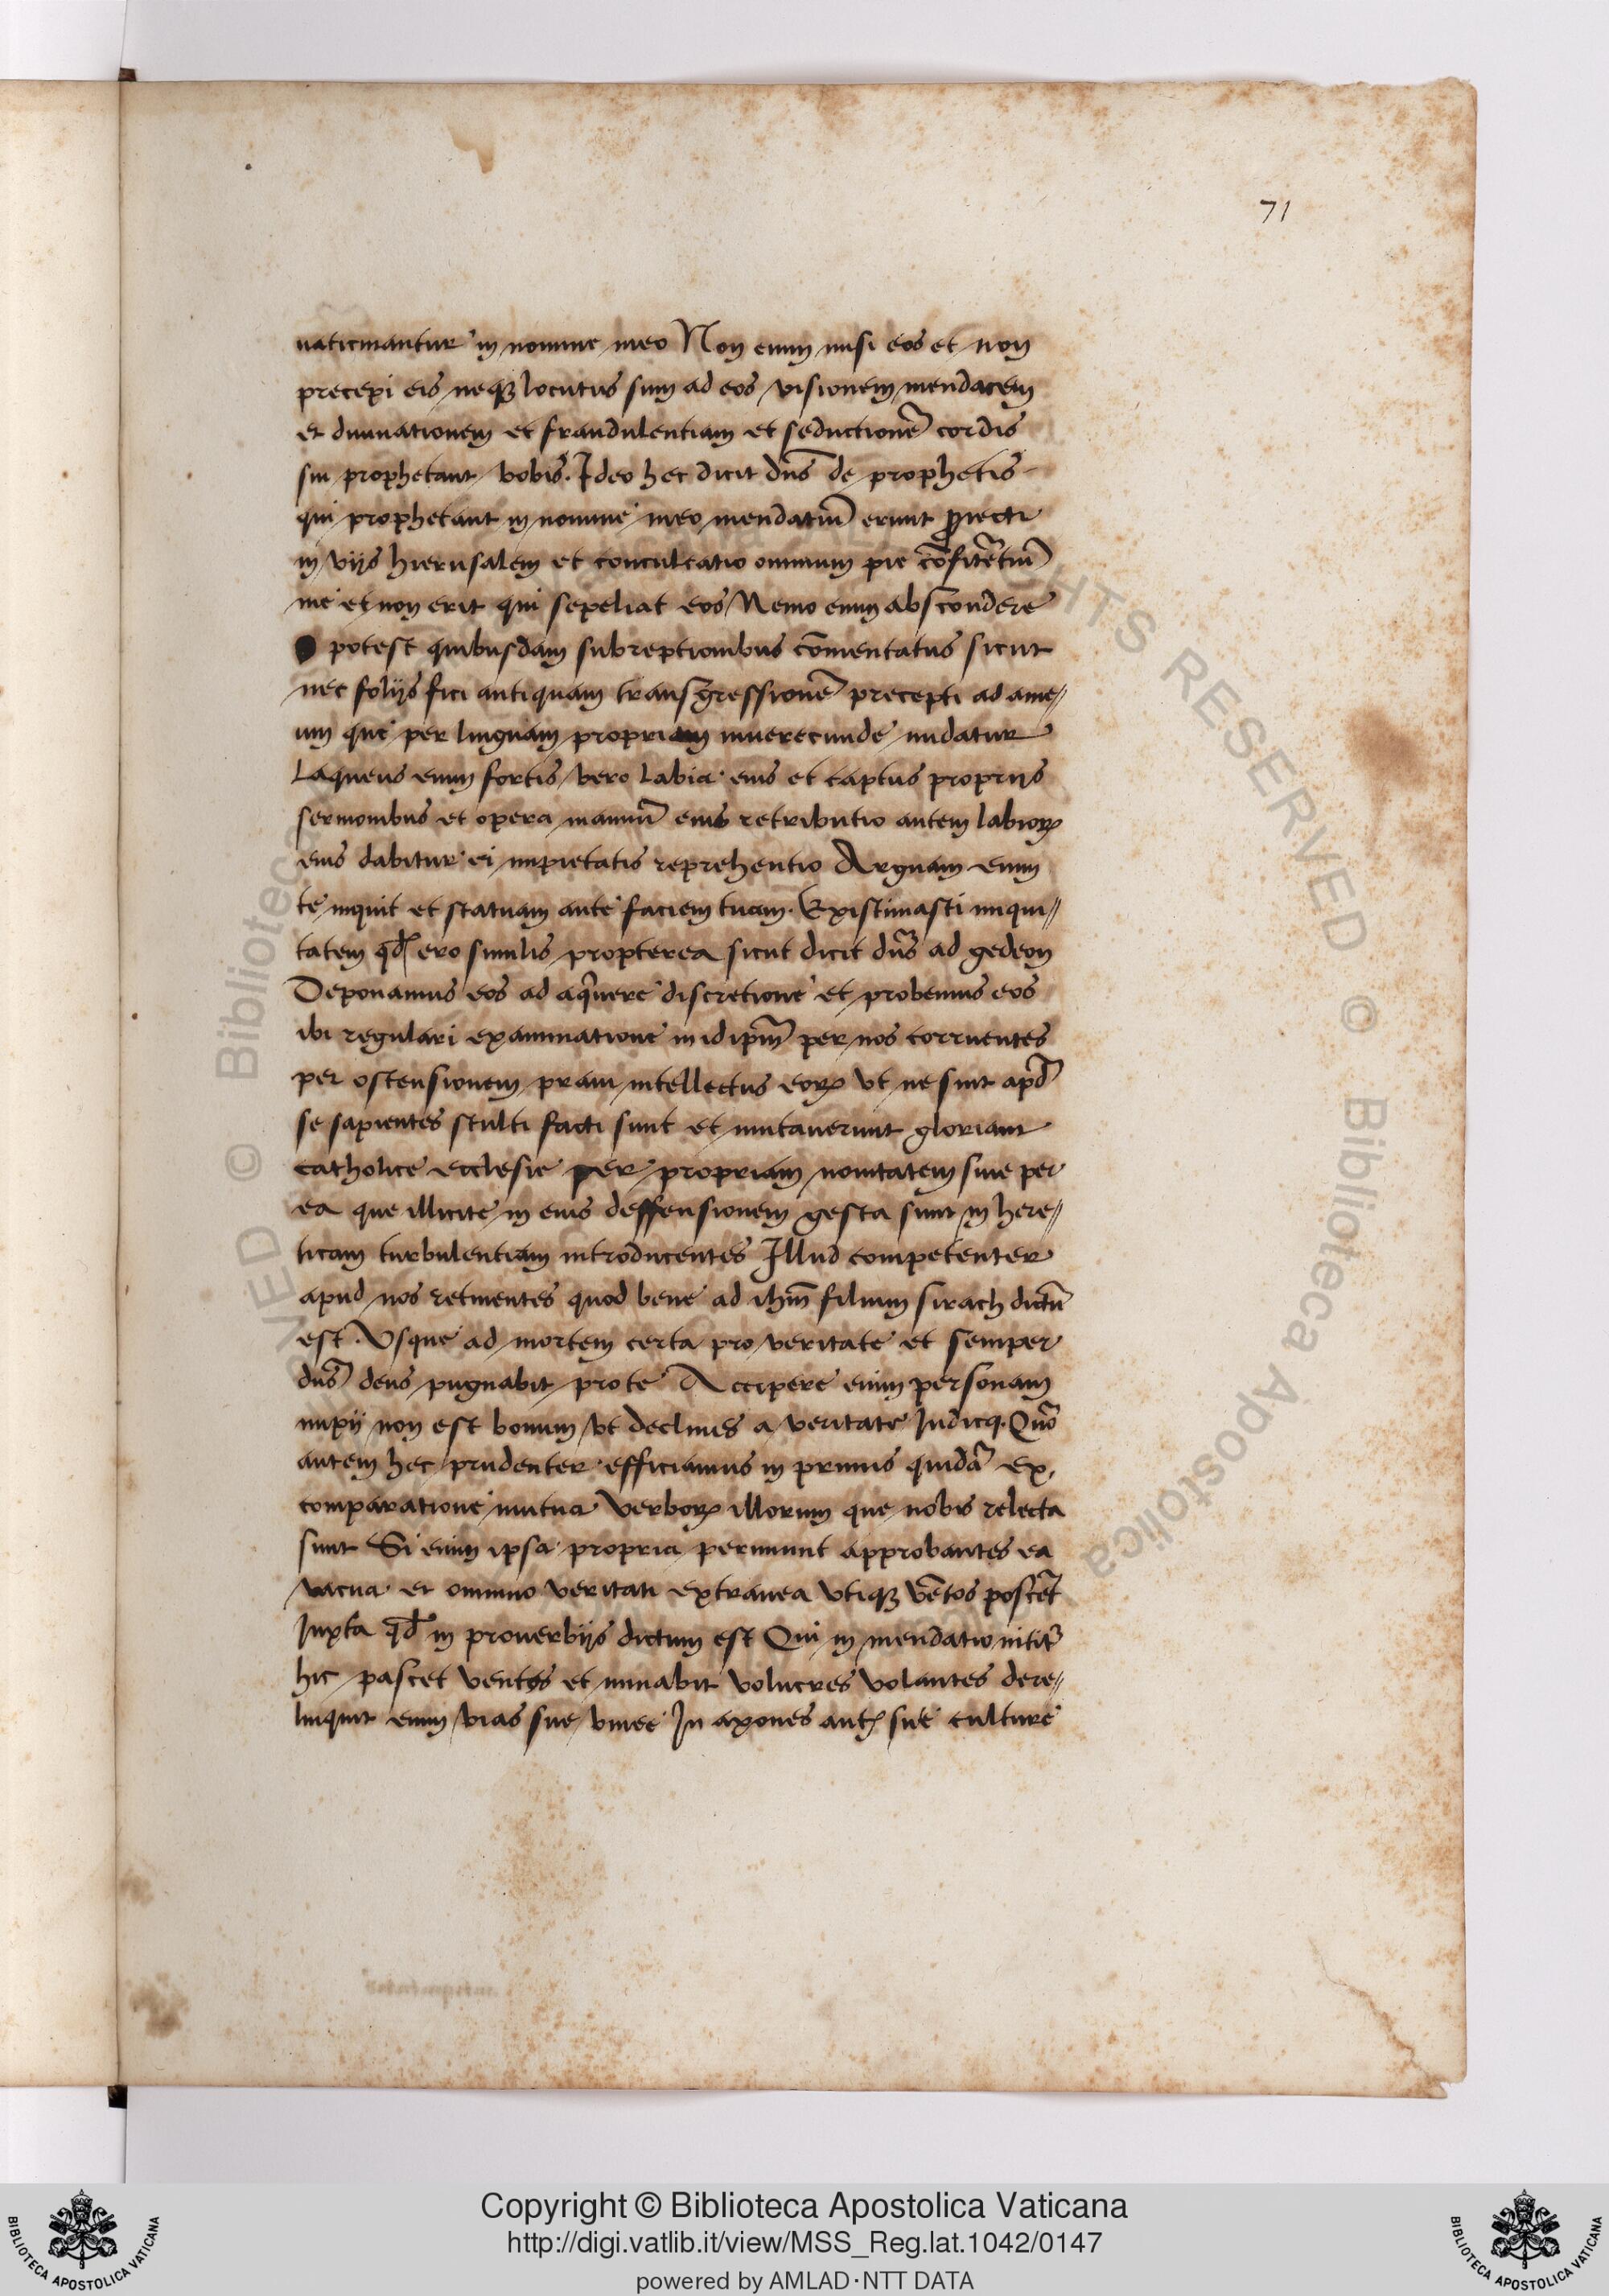 71
uaticinantur in nomine meo Non enim misi eos et non
precepi eis neqꝫ locutus sum ad eos visionem mendacem
et diuinationem et fraudulentiam et seductionē cordis
sui prophetant vobis. Ideo hec dicit dn̄s de prophetis
qui prophetant in nomine meo mendatiū erunt ꝓiecti
in viis hierusalem et conculcatio omnium pre cōfitētiū
me et non erit qui sepeliat eos Nemo enim abscondere
potest quibusdam subreptionibus cōmentatus sicut
nec foliis fici antiquam transgressionē precepti ad ame//
um que per linguam propriam inuerecunde nudatur
Laqueus enim fortis vero labia eius et captus propriis
sermonibus et opera manuū eius retributio autem labioꝝ
eius dabitur ei impietatis reprehentio Arguam enim
te inquit et statuam ante faciem tuam. Existimasti iniqui//
tatem qđ ero similis propterea sicut dicit dn̄s ad gedeon
Deponamus eos ad aquere discretione et probemus eos
ibi regulari examinatione in id ipm̄ per nos corruentes
per ostensionem praui intellectus eoꝝ vt ne sint apđ
se sapientes stulti facti sunt et mutauerunt gloriam
catholice ecclesie per propriam nouitatem siue per
ea que illicite in eius deffensionem gesta sunt in here//
ticam turbulentiam introducentes Illud competenter
apud nos retinentes quod bene ad ihm̄ filium sirach dictū
est. Vsque ad mortem certa pro veritate et semper
dn̄s deus pugnabit pro te Accipere enim personam
impii non est bonum vt declines a veritate Iudicq. Quō
autem hec prudenter efficiamus in primis quidā ex
comparatione mutua verboꝝ illorum que nobis relecta
sunt Si enim ipsa propria perimunt approbantes ea
vacua et omnino veritati extranea vtiqꝫ vētos poscēt
Iuxta qđ in prouerbiis dictum est Qui in mendatio nitit̄
hic pascet ventos et minabit volucres volantes dere//
linquit enim vias sue vinee In axones autꝫ sue culture
Copyright © Biblioteca Apostolica Vaticana
http://digi.vatlib.it/view/MSS_Reg.lat.1042/0147
powered by AMLAD·NTT DATA
BIBLIOTECA APOSTOLICA VATICANA
BIBLIOTECA APOSTOLICA VATICANA